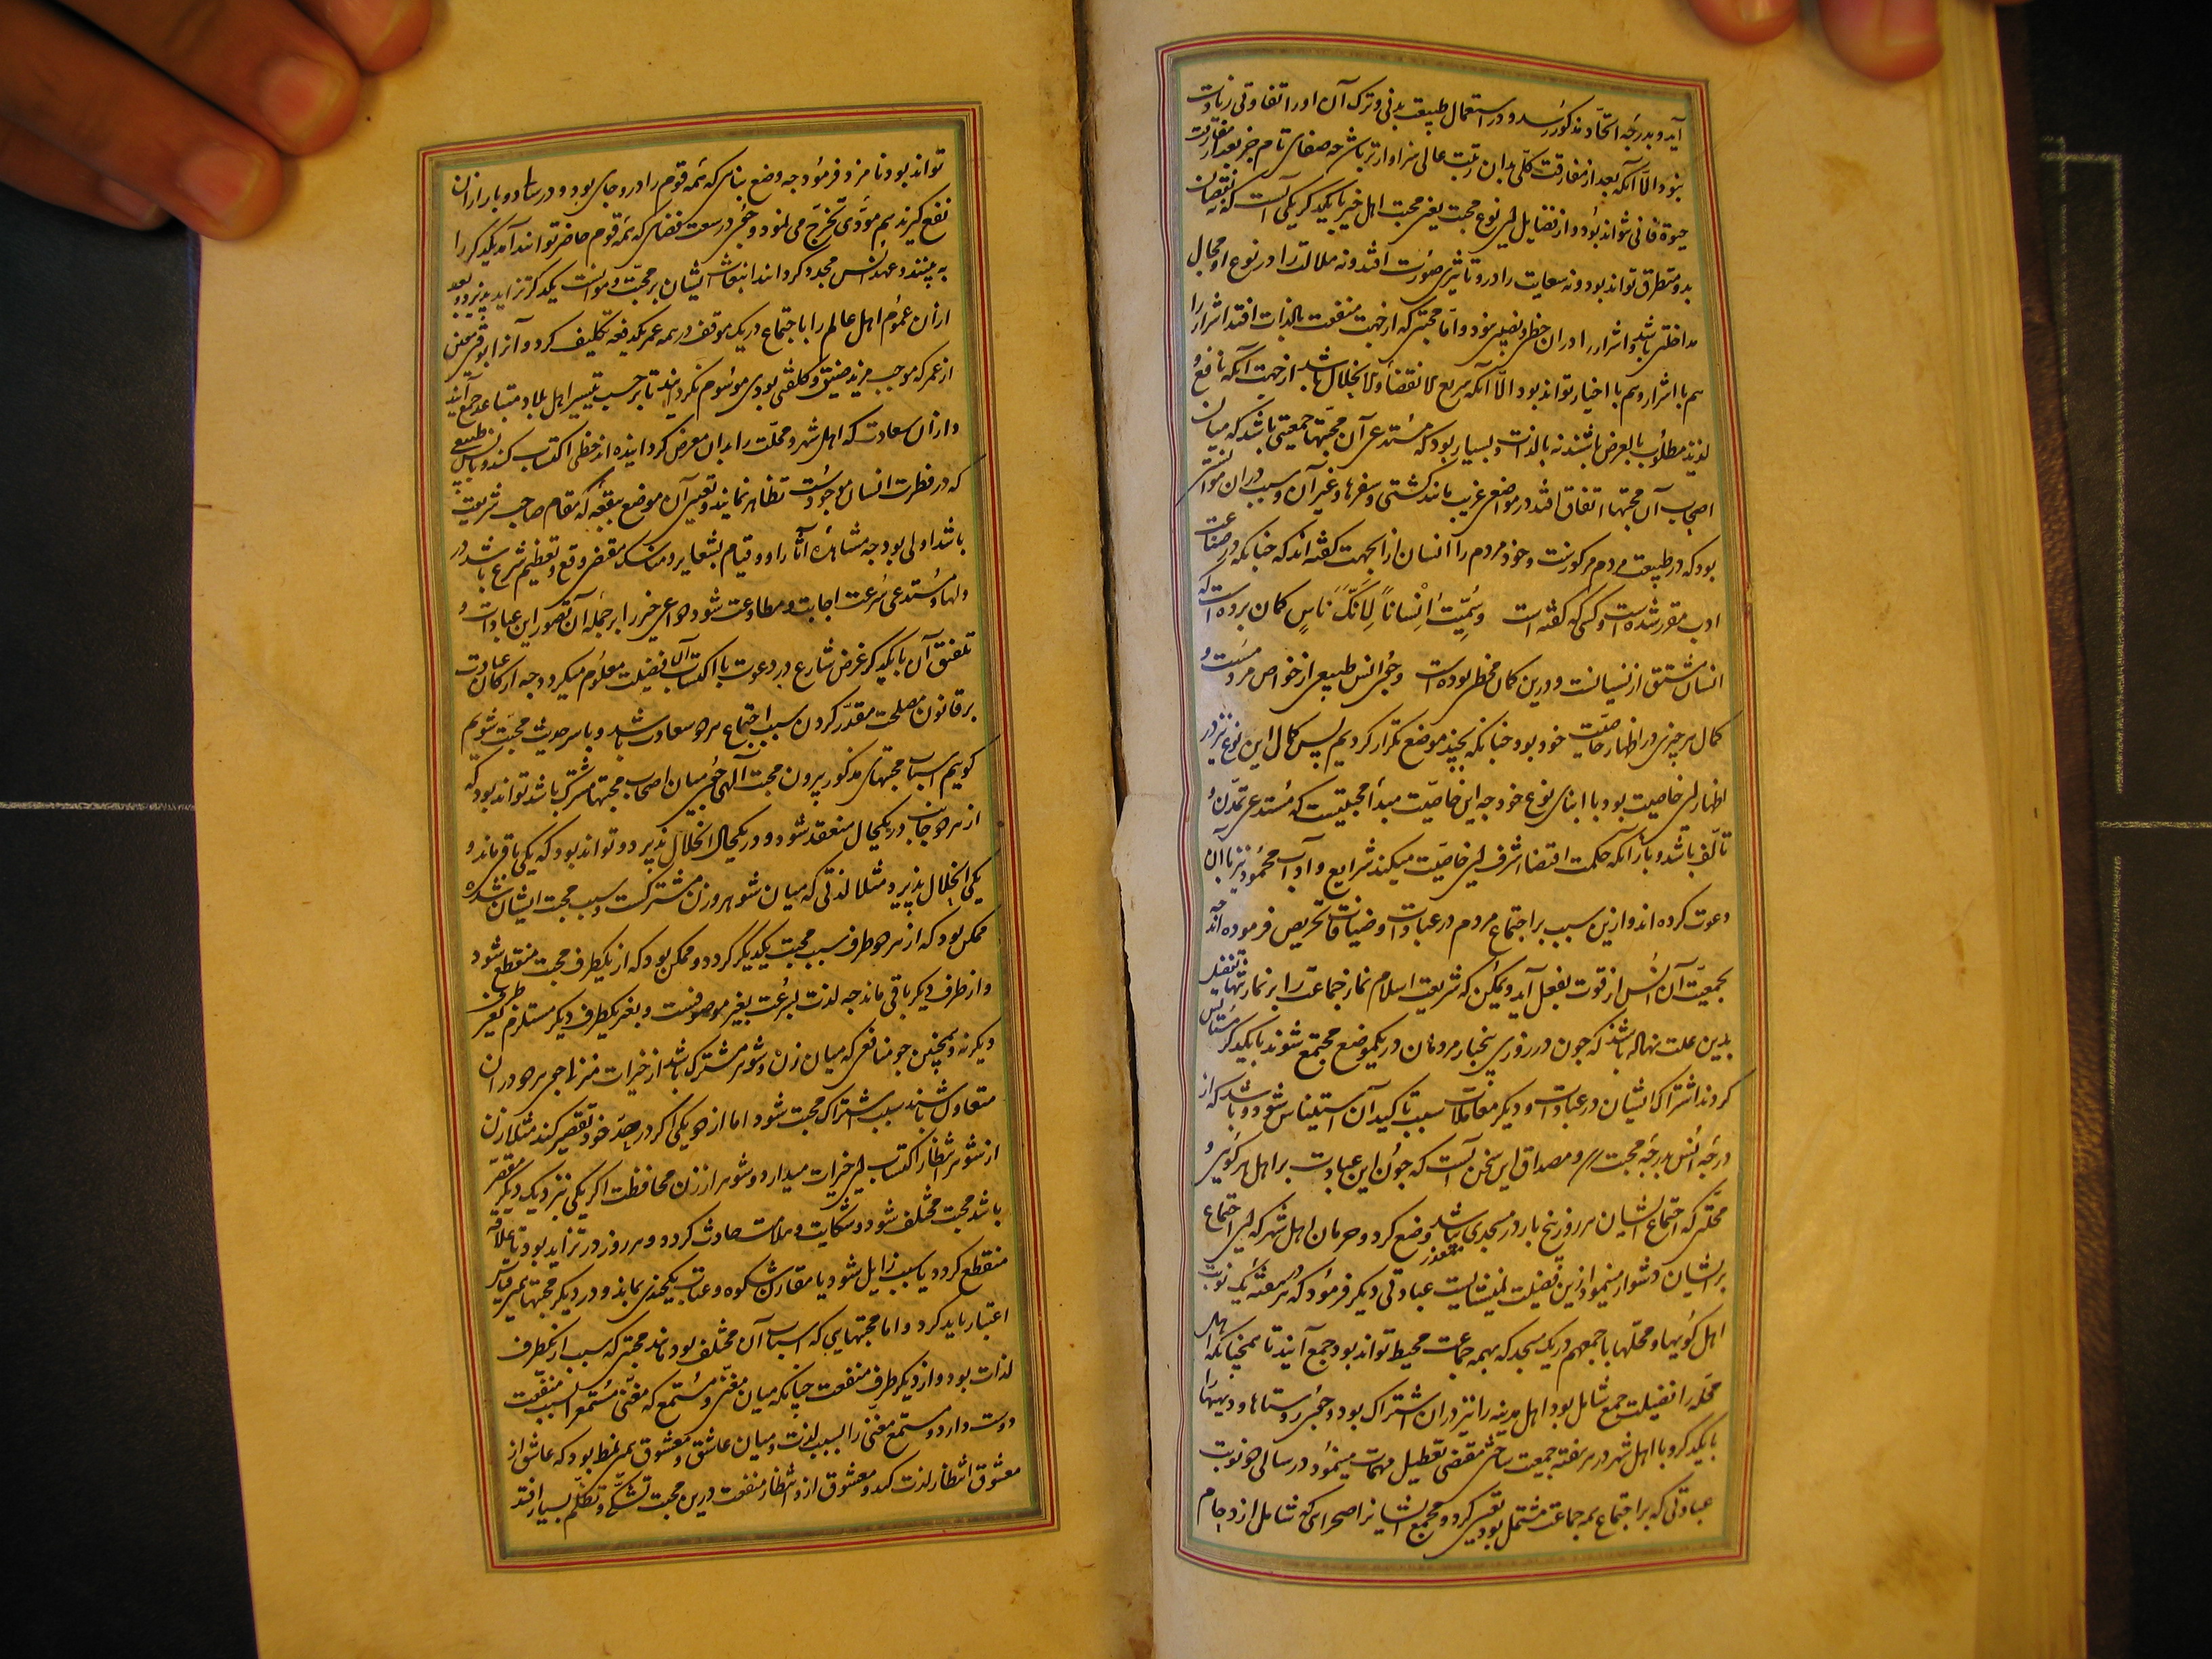 آید و بدرجه اتحاد مذکور رسد و در استعمال طبیعت بدنی و ترک آن او را تفاوتی زیادت
نبود الا آنکه بعد از مفارقت کلی بدان رتبت عالی سزاوارتر باشد چه صفای تام جز بعد از مفارقت
حیوة فانی نتواند بود و از فضایل این نوع محبت یعنی محبت اهل خیر با یکدیگر یکی آنست که نه نقصان
بدو متطرق تواند بود و نه سعایت را درو تاثیری صورت افتد و نه ملالت را در نوع او مجال
مداخلتی باشد و اشرار را در ان حظ و نصیبی نبود و اما محبتی که از جهت منفعت یا لذات افتد اشرار را
هم با اشرار و هم با اخیار تواند بود الا آنکه سریع الانقضا و الانحلال باشد از جهت آنکه نافع و
لذیذ مطلوب بالعرض باشند نه بالذات و بسیار بود که مستدعی آن محبتها جمعیتی باشد که میان
اصحاب آن محبتها اتفاق افتد در مواضع غریب مانند کشتی و سفرها و غیر آن و سبب در ان موانستی
بود که در طبیعت مردم مرکوزست و خود مردم را انسان از انجهت گفته اند که چنانکه در صناعت
ادب مقرر شده است و کسی که گفته است وسُمِّیتَ اِنْساناً لِاَنَّکَ ناسِ گمان برده است که
انسان مشتق از نسیانست و درین گمان مخطی بوده است و چون انس طبیعی از خواص مردمست و
کمال هر چیزی در اظهار خاصیت خود بود چنانکه بچند موضع تکرار کردیم پس کمال این نوع نیز در
اظهار این خاصیت بود با ابنای نوع خود چه این خاصیت مبدا محبتیست که مستدعی تمدن و
تالف باشد و با آنکه حکمت اقتضا شرف این خاصیت میکند شرایع و آداب محمود نیز با آن
دعوت کرده اند و ازین سبب بر اجتماع مردم در عبادات و ضیافات تحریص فرموده اند چه
بجمعیت آن انس از قوت بفعل آید و یمکن که شریعت اسلام نماز جماعت را بر نماز تنها تفضیل
بدین علت نهاده باشد که چون در روزی پنج بار مردمان در یکموضع مجتمع شوند با یکدیگر مستانس
گردند اشتراک ایشان در عبادات و دیگر معاملات سبب تاکید آن استیناس شود و باشد که از
درجه انس بدرجه محبت رسد و مصداق این سخن آنست که چون این عبادت بر اهل هر کویی و
محلتی که اجتماع ایشان هر روز پنج بار در مسجدی متعذر نباشد وضع کرد و حرمان اهل شهر که این اجتماع
بر ایشان دشوار مینمود ازین فضیلت نمیشایست عبادتی دیگر فرمود که در هر هفته یک نوبت
اهل کویها و محلتها باجمعهم در یک مسجد که بهمه جماعت محیط تواند بود جمع آیند تا همچنانکه اهل
محله را فضیلت جمع شامل بود اهل مدینه را نیز دران اشتراک بود و چون روستاها و دیهها را
با یکدیگر و با اهل شهر در هر هفته جمعیت ساختن مقتضی تعطیل مهمات مینمود در سالی دو نوبت
عبادتی که بر اجتماع همه جماعت مشتمل بود تعیین کرد و مجمع ایشانرا صحرای که شامل ازدحام
تواند بود نامزد فرمود چه وضع بنای که همه قوم را درو جای بود و در سالی دو بار ازان
نفع گیرند هم مؤدی بحرج می نمود و چون در سعت فضای که همه قوم حاضر توانند آمد یکدیگر را
به بینند و عهد انس مجدد گردانند انبعاث ایشان بر محبت و موانست یکدیگر تزاید پذیرد و بعد
ازان عموم اهل عالم را باجتماع در یک موقف در همه عمر یکدفعه تکلیف کرد و آنرا بوقتی معین
از عمر که موجب مزید ضیق و کلفتی بودی موسوم نگردانید تا بر حسب تیسیر اهل بلاد متباعد جمع آیند
و ازان سعادت که اهل شهر و محلت را بدان معرض گردانیده اند حظی اکتساب کنند و بانس طبیعی
که در فطرت انسان موجودست تظاهر نمایند و تعیین آن موضع ببقعه که مقام صاحب شریعت
باشد اولی بود چه مشاهده آثار او و قیام بشعایر و مناسک مقتضی وقع و تعظیم شرع باشد در
دلها و مستدعی سرعت اجابت و مطاوعت شود دواعی خیر را بر جمله از تصور این عبادات و
تلفیق آن با یکدیگر غرض شارع در دعوت با اکتساب آن فضیلت معلوم میگردد چه ارکان عبادت
بر قانون مصلحت مقدر کردن سبب اجتماع هر دو سعادت باشد و با سر حدیث محبت شویم
گوییم اسباب محبتهای مذکور بیرون محبت الهی چون میان اصحاب محبتها مشترک باشد تواند بود که
از هر دو جانب در یکحال منعقد شود و در یکحال انحلال پذیرد و تواند بود که یکی باقی ماند و
یکی انحلال پذیرد مثلا لذتی که میان شوهر و زن مشترکست و سبب محبت ایشان شده
ممکن بود که از هر دو طرف سبب محبت یکدیگر گردد و ممکن بود که از یکطرف محبت منقطع شود
و از طرف دیگر باقی ماند چه لذت بسرعت تغیر موصوفست و تغیر یکطرف دیگر مستلزم تغیر طرفی
دیگر نه و همچنین چون منافعی که میان زن و شوهر مشترک باشد از خیرات منزلی چون هر دو در ان
متعاون باشند سبب اشتراک محبت شود اما از دو یکی اگر در حد خود تقصیر کند مثلا زن
از شوهر انتظار اکتساب این خیرات میدارد و شوهر از زن محافظت اگر یکی نزدیک دیگر مقصر
باشد محبت مختلف شود و شکایت و ملامت حادث گردد و هر روز در تزاید بود تا علاقه
منقطع گردد یا سبب زایل شود یا مقارن شکوه و عتاب یکچندی بماند و در دیگر محبتها همین قیاس
اعتبار باید کرد و اما محبتهایی که اسباب آن مختلف بود مانند محبتی که سبب از یکطرف
لذت بود و از دیگر طرف منفعت چنانکه میان مغنی و مستمع که مغنی مستمع را بسبب منفعت
دوست دارد و مستمع مغنی را بسبب لذت و میان عاشق و معشوق همین نمط بود که عاشق از
معشوق انتظار لذت کند و معشوق ازو انتظار منفعت درین محبت تشکی و تظلم بسیار افتد